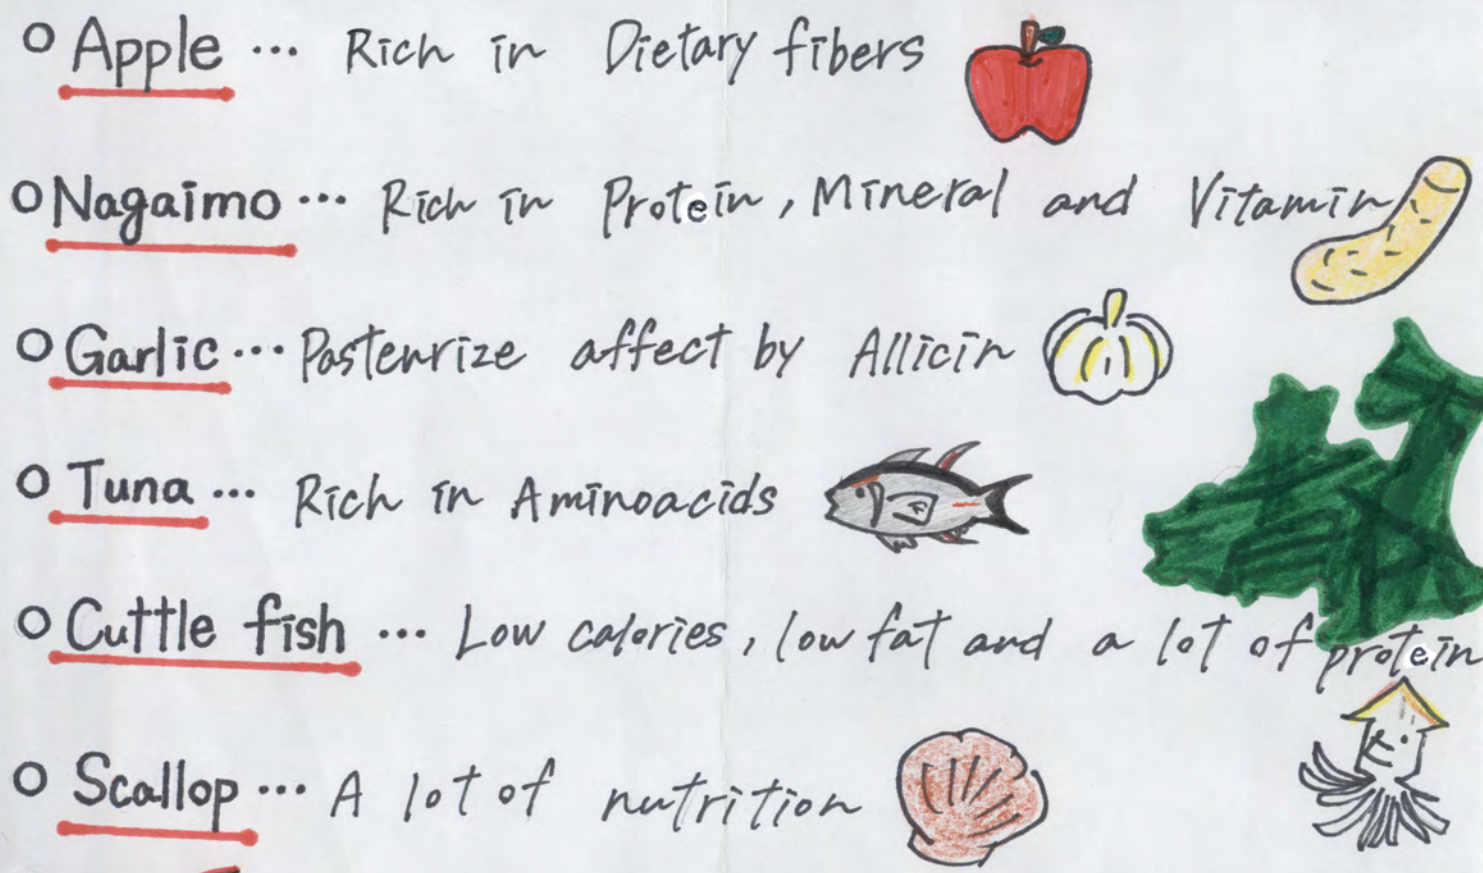 ○ Apple … Rich in Dietary fibers
○ Nagaimo … Rich in Protein, Mineral and Vitamin
○ Garlic … Pasteurize affect by Allicin
○ Tuna … Rich in Aminoacids
○ Cuttle fish … Low calories, low fat and a lot of protein
○ Scallop … A lot of nutrition